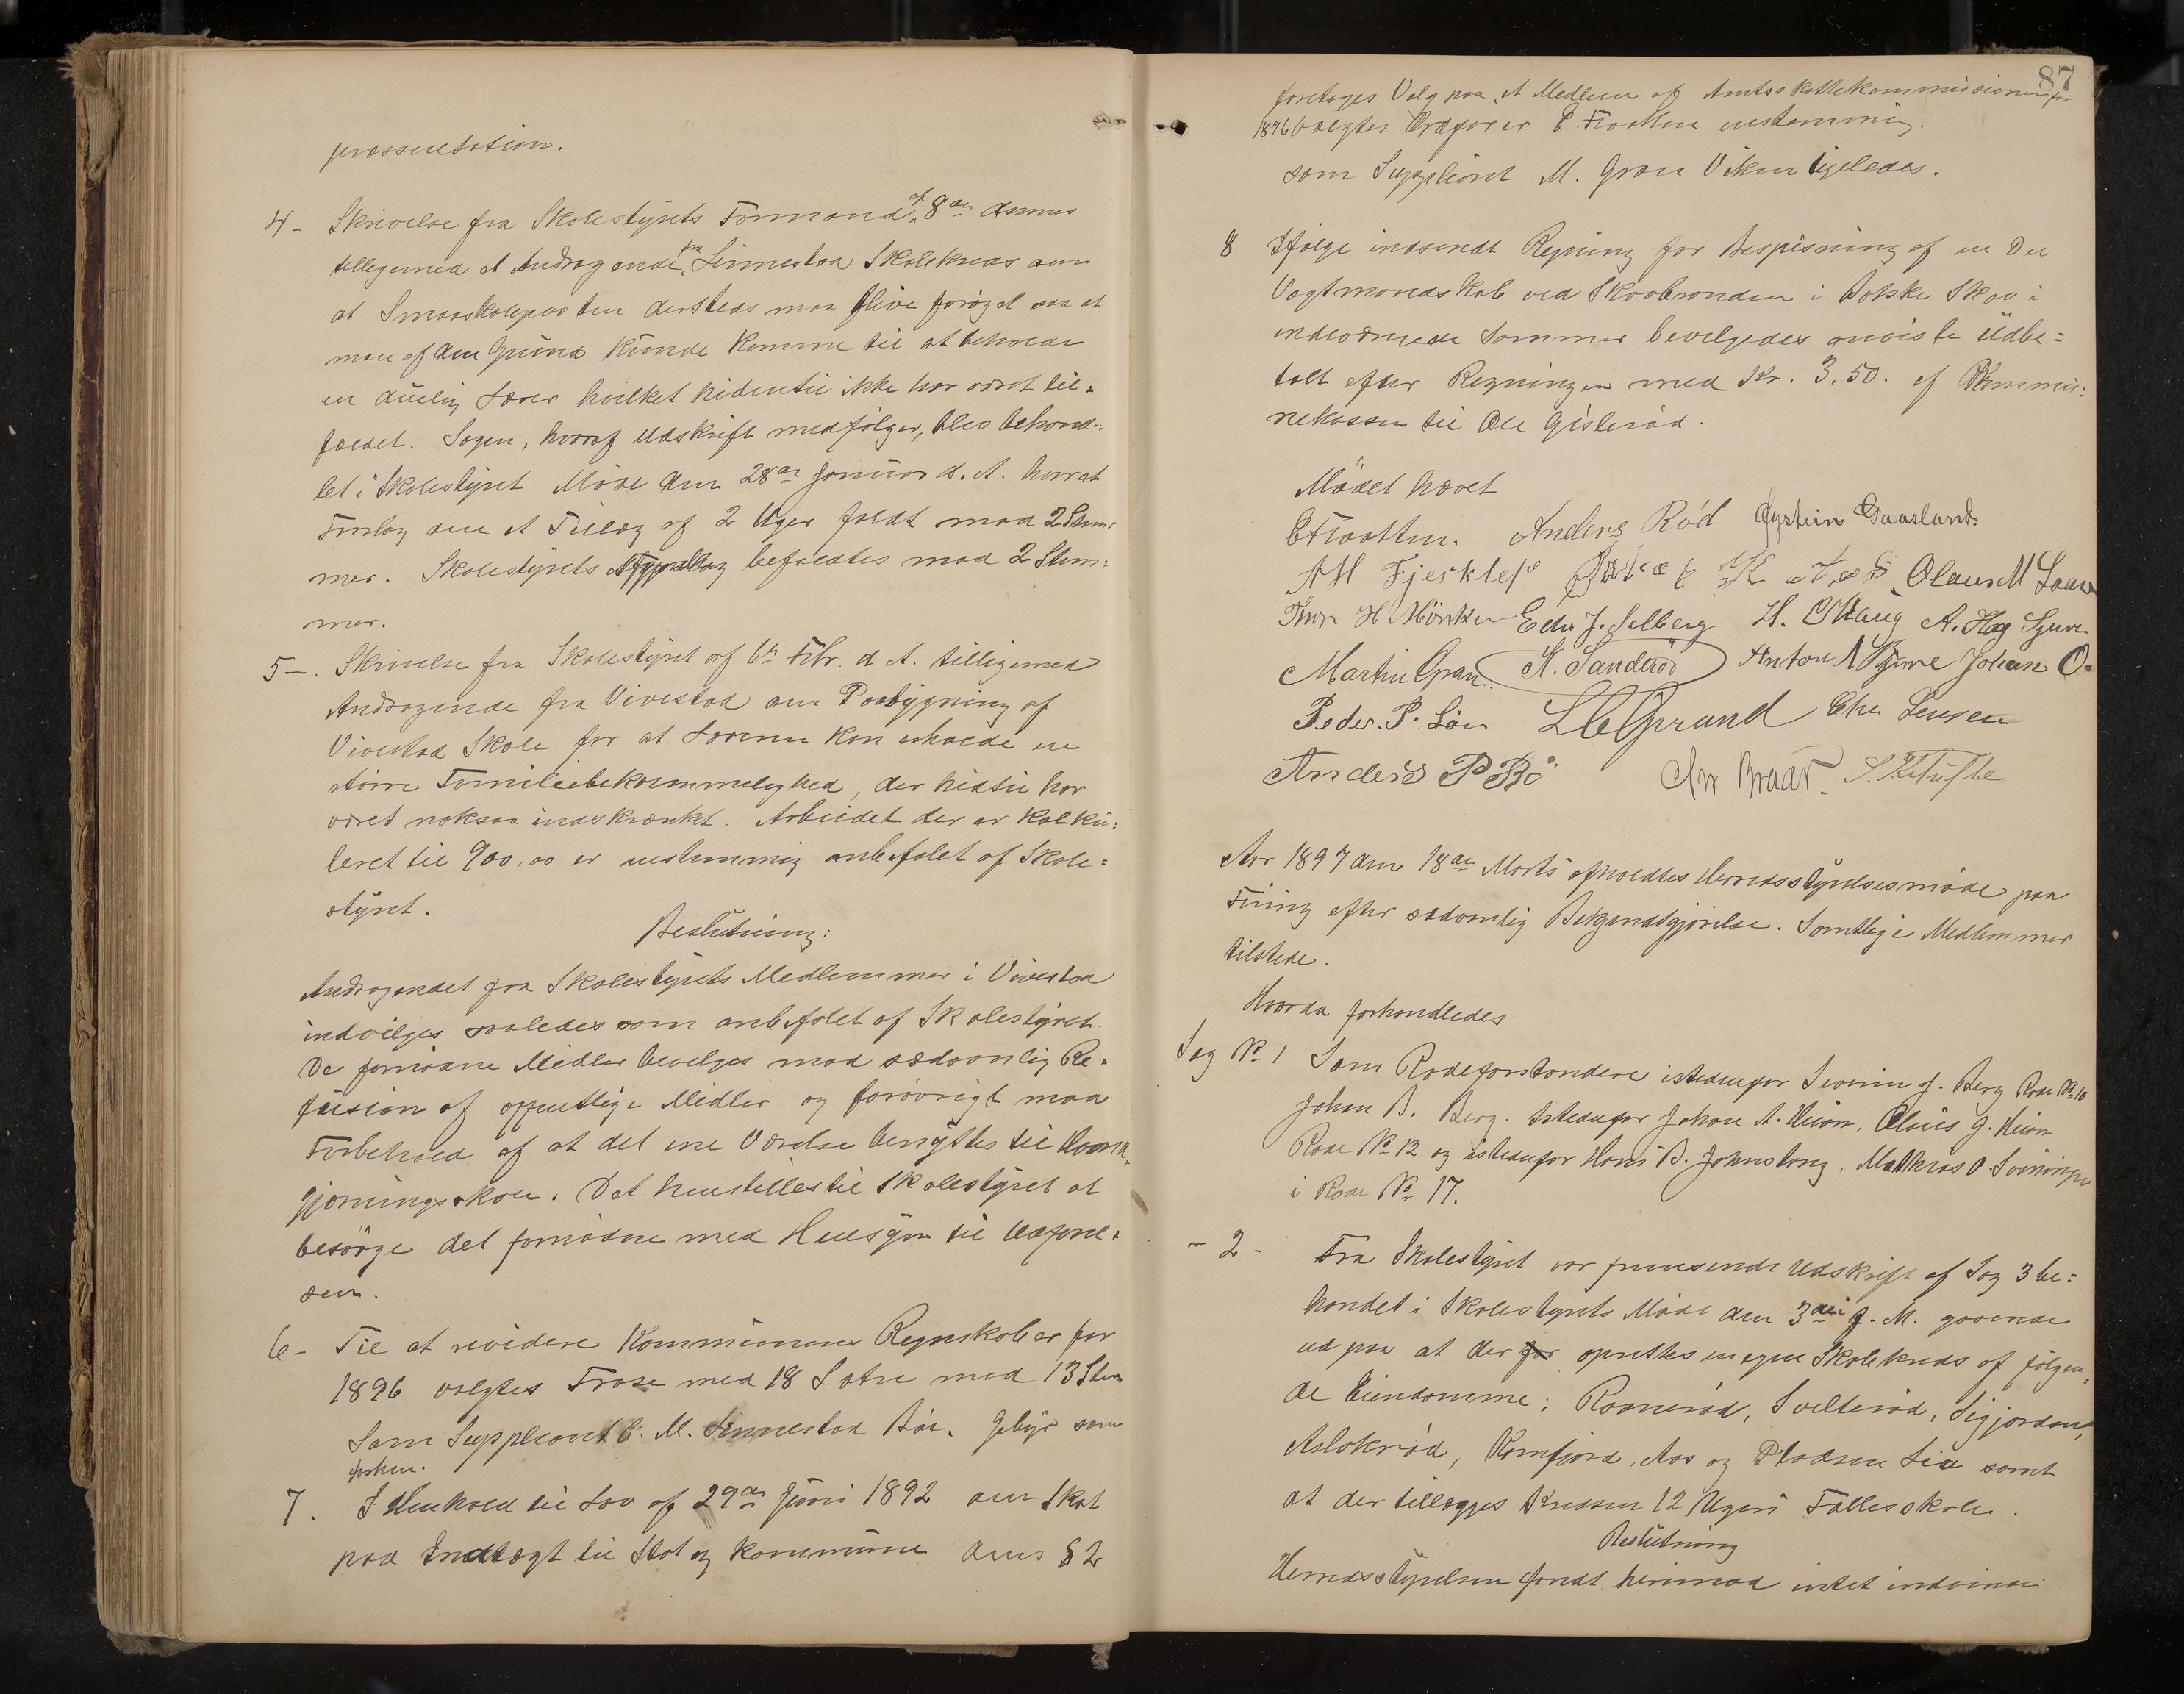 præsentation.
4- Skrivelse fra Skolestyrets Formand af 8de dennes
tilligemed et Andragende fra Linnestad Skolekreds om
at Smaaskoleposten dersteds maa blive forøget saa at
man af den Grund kunde komme til at beholde
en duelig Lærer hvilket hidentil ikke har været til=
fældet. Sagen, hvoraf Udskrift medfølger, blev behand-
let i Skolestyret Møde den 28de Januar d. A. hvorat
Forslag om et Tillæg af 2 Uger faldt mod 2 Stem=
mer. Skolestyrets befaldtes mod 2 Stem=
mer.
5-. Skrivelse fra Skolestyret af 6te Febr. d A. tilligemed
Andragende fra Vivestad om Paabygning af
Vivestad Skole for at Læreren kan erholde en
større Familiebekvemmelighed, der hidtil har
været noksaa indskrænket. Arbeidet der er kalku=
leret til 900,00 er enstemmig anbefalet af Skole=
styret.
Beslutning:
Andragendet fra Skolestyrets Medlemmer i Vivestad
indvilges saaledes som anbefalet af Skolestyret.
De fornødne Midler bevilges mod sædvanlig Re=
fusion af offentlige Midler og forøvrigt med
Forbehold af at det ene Værelse benyttes til Haand=
gjerningsskole. Det henstilles til Skolestyret at
besørge det fornødne med Hensyn til Udførel=
sen.
6- Til at revidere Kommunens Regnskaber for
1896 valgtes Frase med 18 Lotre mod 13 Stem
Som Suppleant E. M. Linnestad Bøe. Gebyr som
forhen.
7. I Henhold til Lov af 29de Juni 1892 om Skat
paa Indtægt til Stat og Kommune dens § 2
87
foretages Valg paa et Medlem af Amtsskattekommissionen for
1896 valgtes Ordfører E. Flaatten enstemmig.
som Suppleant M. Gran Viken ligeledes.
8 Ifølge indsendt Regning for Bespisning af en Del
Vagtmandskab ved Skovbranden i Bakske Skov i
indeværende Sommer bevilgedes  udbe=
talt efter Regningen med Kr. 3,50. af Kommu=
nekassen til Ole Gislerød.
Mødet hævet
E Flaatten. Anders Rød Øystein Gaaslund
AM Fjerklep Olaus M Laane
Thor H Mörken Edv J. Solberg H. O Haug A. Hag Gjuve
Martin Gran. K. Sanderöd Anton N Gjuve Johan O.
Peder. P. Löu L C Grand Chr Jensen
Anders P Bö
Aar 1897 den 18de Marts afholdtes Herredsstyrelsesmøde paa
Fining efter sædvanlig Bekjendtgjørelse. Samtlige Medlemmer
tilstede.
Hvorda forhandledes
Sag No 1 Som Rodeforstandere istedenfor Severin J. Berg Rode No 10
Johan B. Berg. Istedenfor Johan A. Hvion, Olaus J. Hvion
Rode No 12 og istedenfor Hans B. Johnstang, Mathias O. Svinningen
i Rode No 17.
- 2 - Fra Skolestyret var fremsendt Udskrift af Sag 3 be=
handlet i Skolestyrets Møde den 3die f. M. gaaende
ud paa at der oprettes en egen Skolekreds af følgen=
de Eiendomme: Raanerød, Svelterød, Sigjorden,
Aslakrød, Kamfjord, Aas og Pladsen Lia samt
at der tillægges Kredsen 12 Ugers Fællesskole.
Beslutning
Herredsstyrelsen fandt herimod intet indvinde